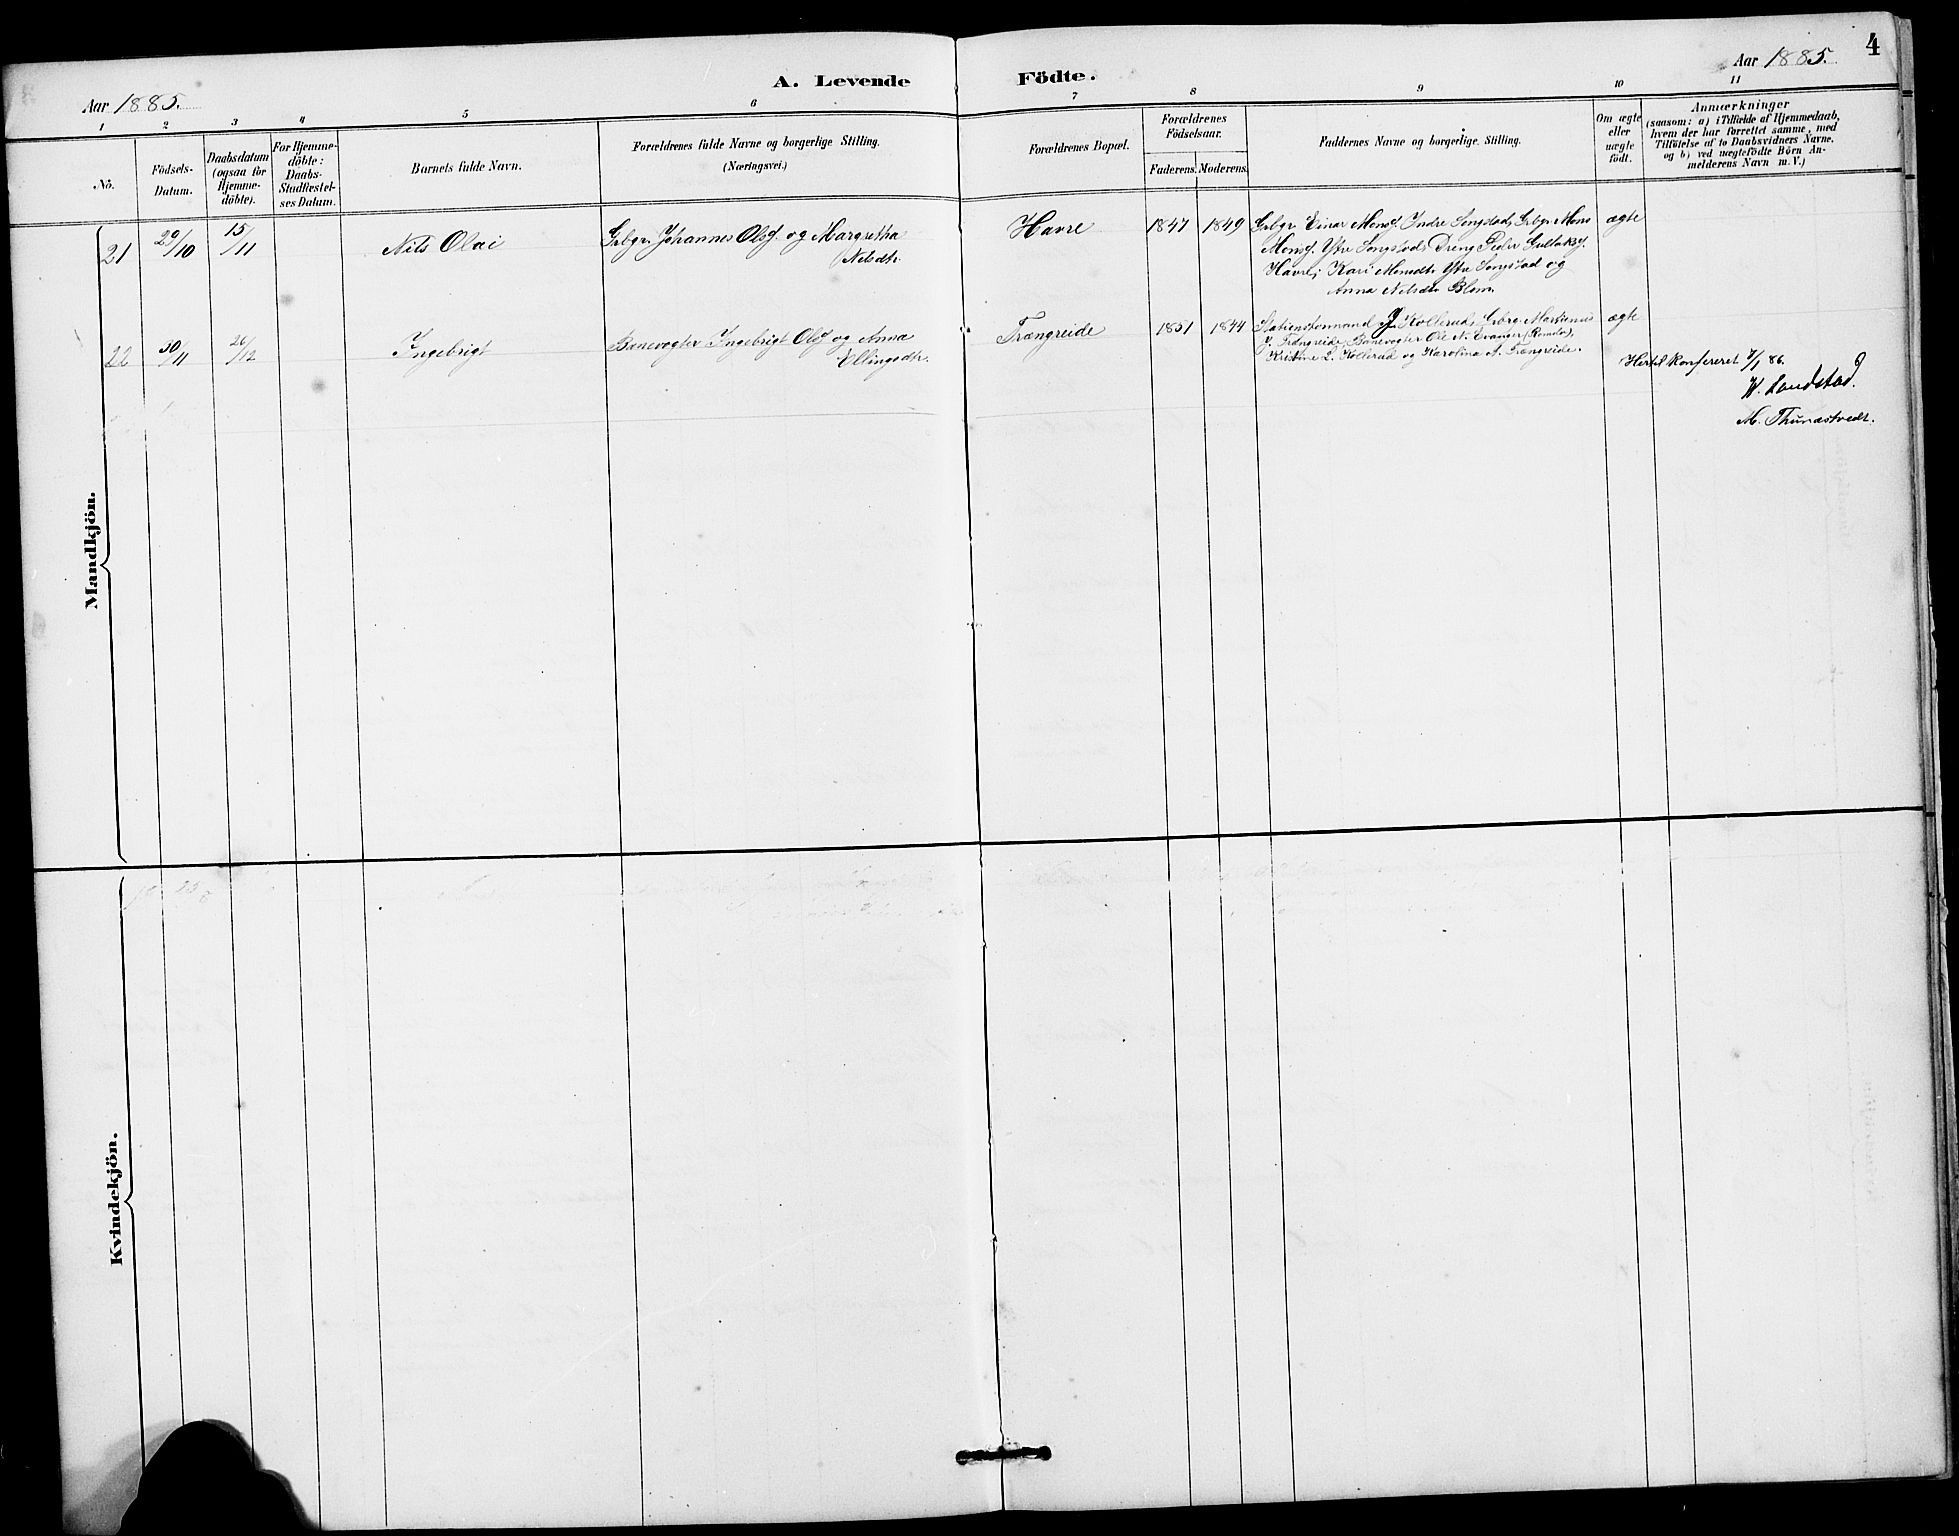 4
A. Levende Födte.
Aar 1885.
Aar 1885.
1 2 3 4 5 6 7 8 9 10 11
No.
Födsels-
Datum.
Daabsdatum
(ogsaa for
Hjemme-
döbte).
For Hjemme-
döbte:
Daabs-
Stadfæstel-
ses Datum.
Barnets fulde Navn.
Forældrenes fulde Navne og borgerlige Stilling.
(Næringsvei.)
Forældrenes Bopæl.
Forældrenes
Födselsaar.
Faderens. Moderens.
Faddernes Navne og borgerlige Stilling.
Om ægte
eller
uægte
födt.
Anmærkninger
(saasom: a) i Tilfælde af Hjemmedaab,
hvem der har forrettet samme, med
Tilföielse af to Daabsvidners Navne,
og b) ved uægtefödte Börn An-
melderens Navn m. V.)
Mandkjön.
21 29/10 15/11 Nils Olai
Grbgr. Johannes Olsf. og Margretha
Nelsdtr.
Havre 1847 1849
Grbgr. Einar Monsf. Indre Songstad, Grbgr. Mons
Monsf. Ytre Songstad, Dreng Peder Gullaksf.
Havre, Kari Monsdtr. Ytre Songstad og
Anna Nelsdtr. Blom.
ægte
22 30/11 26/12 Ingebrigt
Banevogter Ingebrigt Olsf. og Anna
Ellingsdtr.
Trængreide 1851 1844
Stationsformand Kollerud, Grbrg. Martinus
Trængreide, Banevogter Ole N. Evanger (Romslo),
Kristine L. Kollerud og Karolina A. Trængreide.
ægte
Hertil konfereret 7/1 86.
W. Landstad.
M. Thunæstvedt.
Kvindekjön.